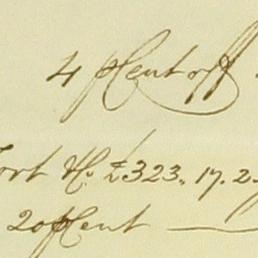 4 ⅌Cent off
ort &c. £323. 17. 2
20 ⅌Cent